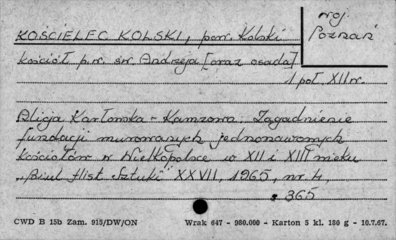 woj.
Poznań
KOŚCIELEC KOLSKI, pow. Kolski
kościół p.w. św. Andrzeja [oraz osada]
1 poł. XII w.
Alicja Karłowska-Kamzowa: Zagadnienie
fundacji murowanych jednonawowych
kościołów w Wielkopolsce w XII i XIII wieku
"Biul. Hist. Sztuki" XXVII, 1965, nr 4,
s. 365
CWD B 15b Zam. 915/DW/ON Wrak 647 - 980.000 - Karton 5 kl. 180 g - 10.7.67.